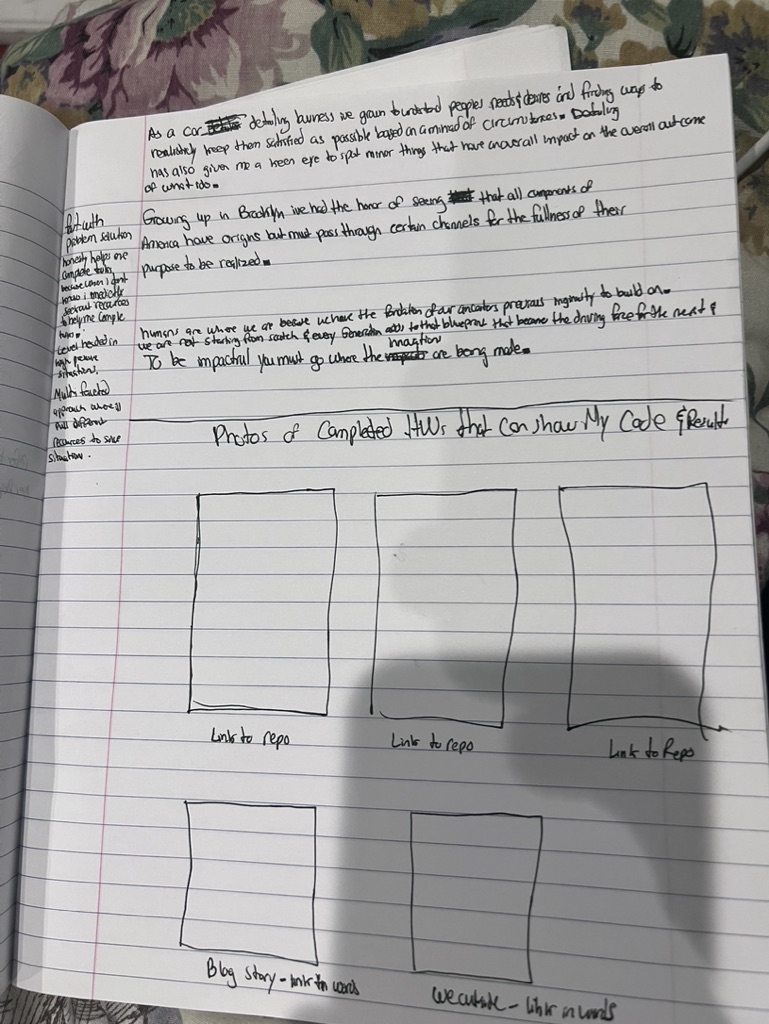 As a car detailing business ive grown to understand peoples needs & desires and finding ways to
realistically keep them satisfied as possible based on a myriad of circumstances. Detailing
has also given me a keen eye to spot minor things that have an overall impact on the overall outcome
of what I do.
Growing up in Brooklyn ive had the honor of seeing that all components of
America have origins but must pass through certain channels for the fullness of their
purpose to be realized.
humans are where we are because we have the foundation of our ancestors previous to build on.
we are not starting from scratch & every Generation adds to that blueprint that became the driving force for the next &
innovations
To be impactful you must go where the are being made.
problem solution
honesty helps me
complete tasks
because when I don't
know I
seek out resources
to help me complete
Level headed in
high pressure
situations.
Multi faceted
approach where I
Pull different
resources to solve
situation.
Photos of Completed HWs that can show My Code & Results
Link to repo
Link to repo
Link to Repo
Blog story - link in words
- link in words